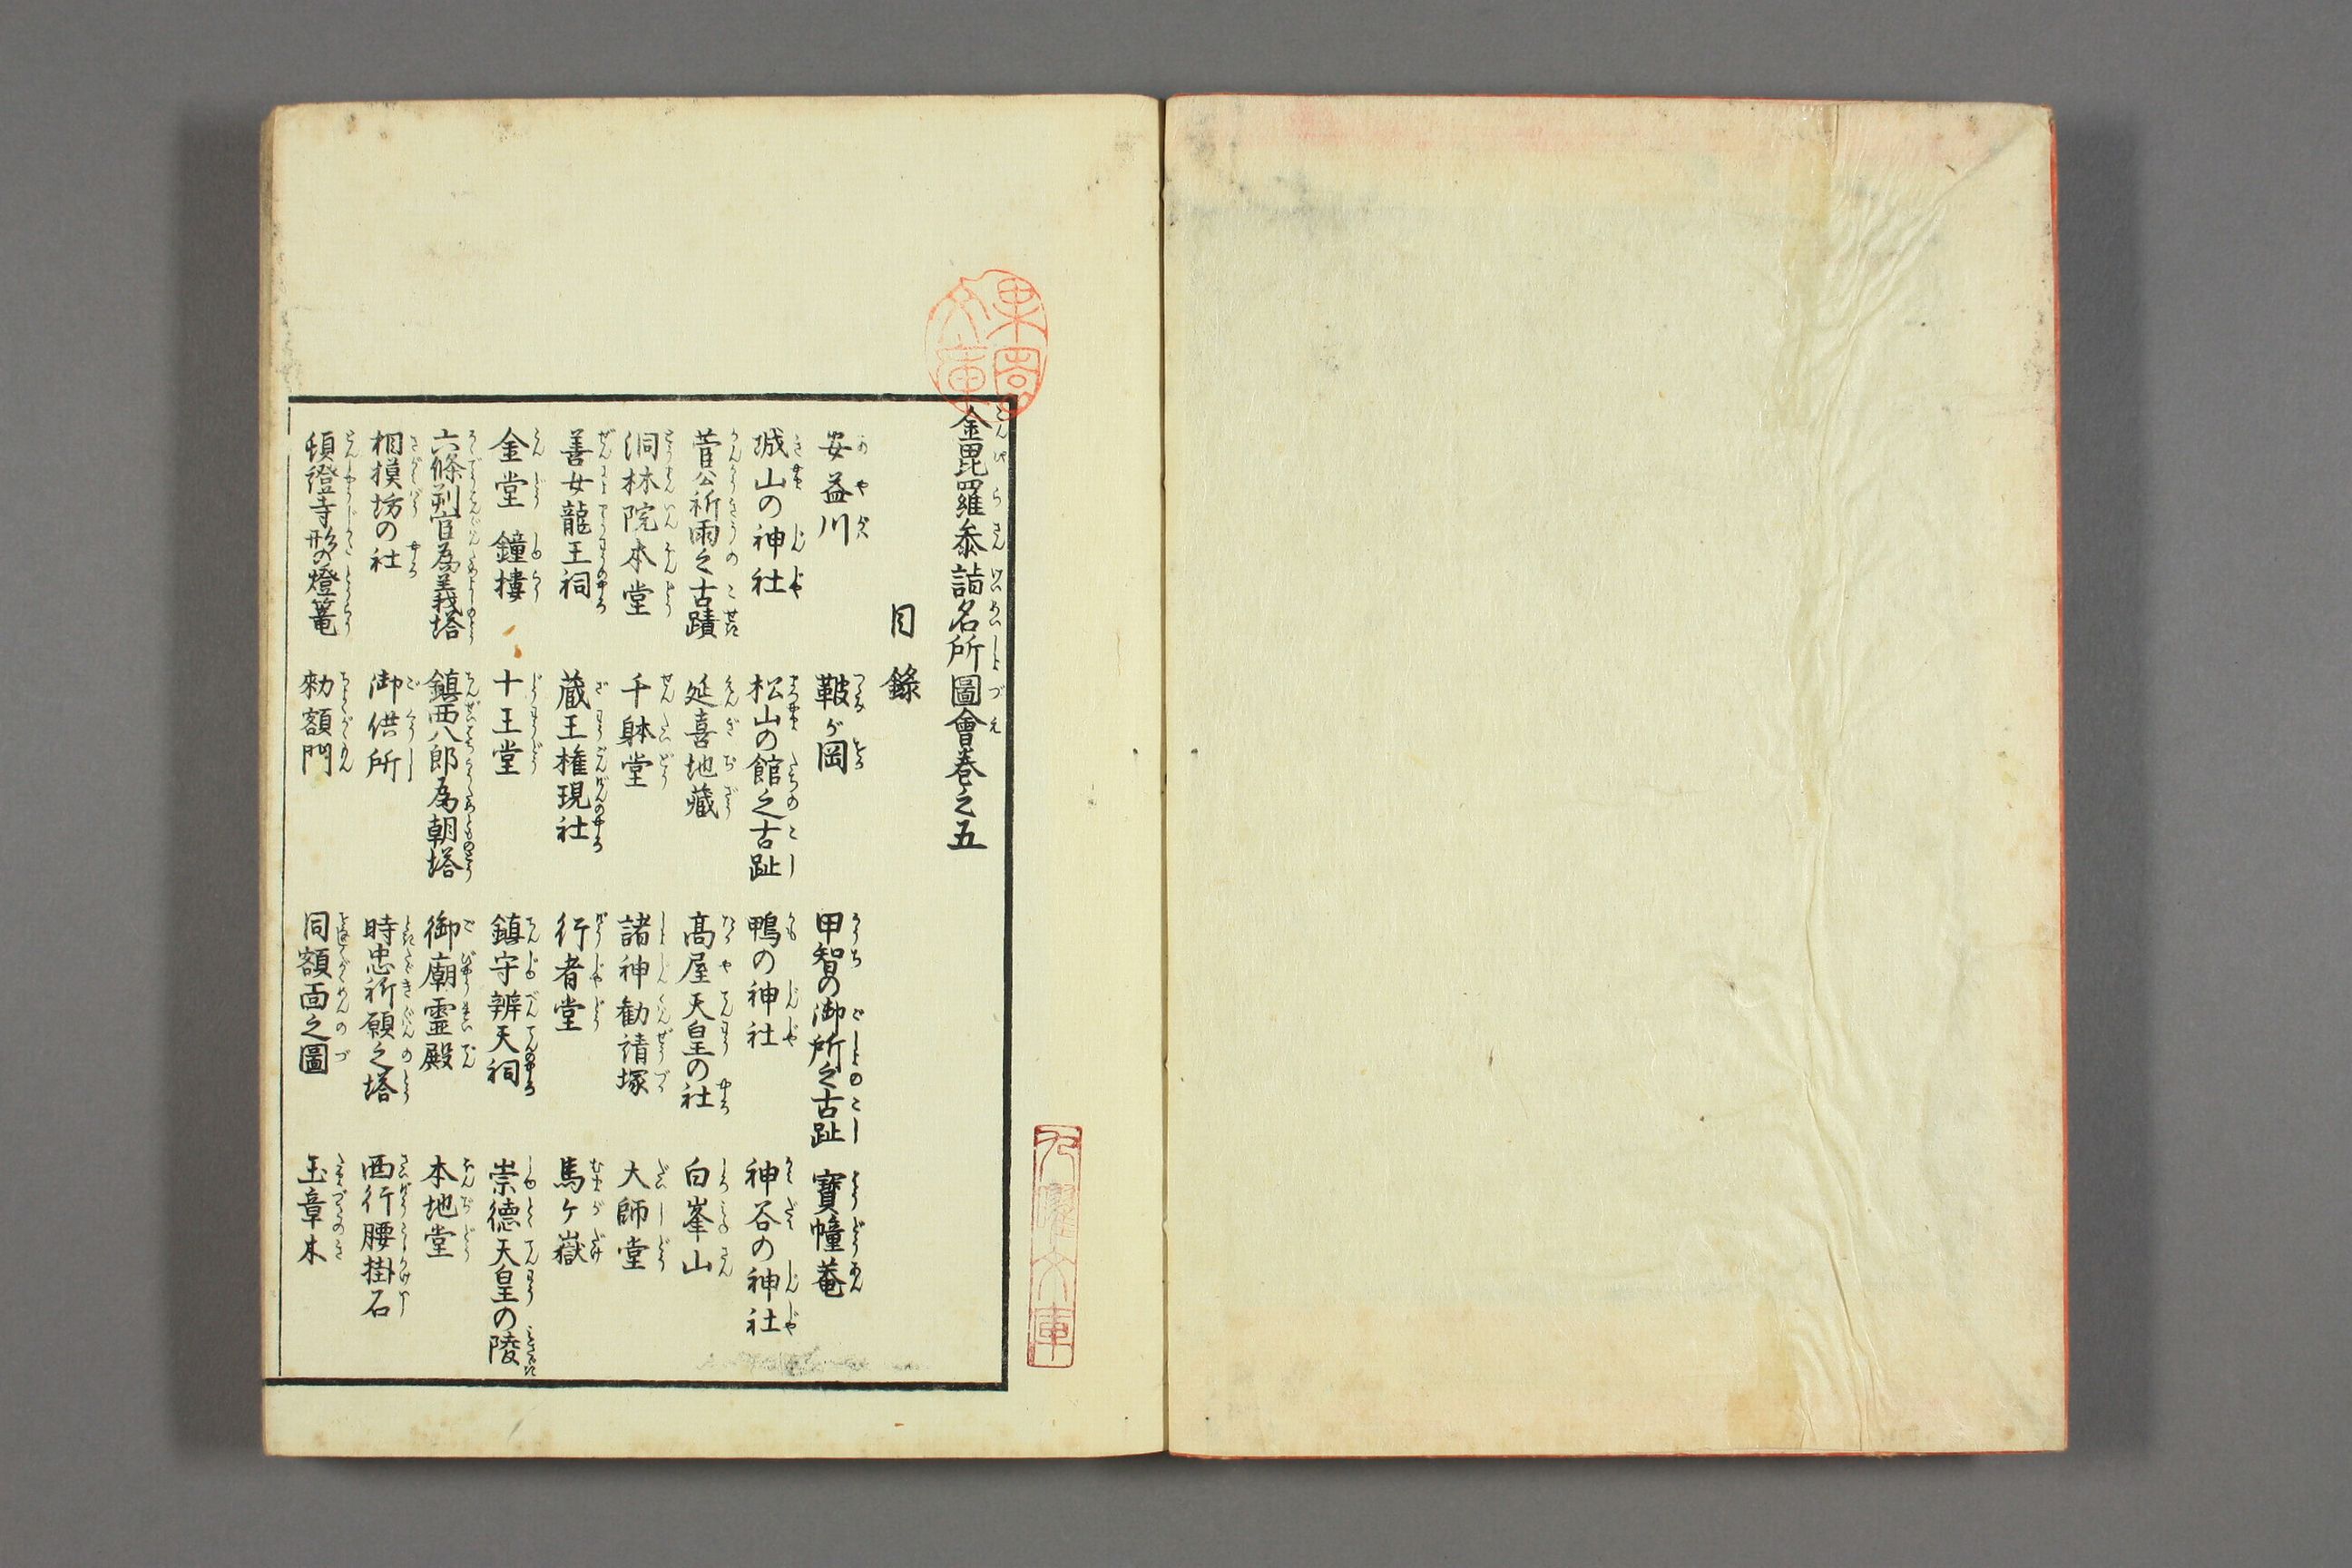 金毘羅参詣名所圖會巻之五
目録
安益川 鞁が岡 甲智の御所之古趾 寶幢菴
城山の神社 松山の館之古趾 鴨の神社 神谷の神社
菅公祈雨之古蹟 延喜地蔵 高屋天皇の社 白峯山
洞林院本堂 千躰堂 諸神勧請塚 大師堂
善女龍王祠 蔵王権現社 行者堂 馬ケ嶽
金堂 鐘楼 十王堂 鎮守辨天祠 崇徳天皇の陵
六條判官為義塔 鎮西八郎為朝塔 御廟霊殿 本地堂
相模坊の社 御供所 時忠祈願之塔 西行腰掛石
頓證寺形の燈篭 勅額門 同額面之圖 玉章木
九曜文庫